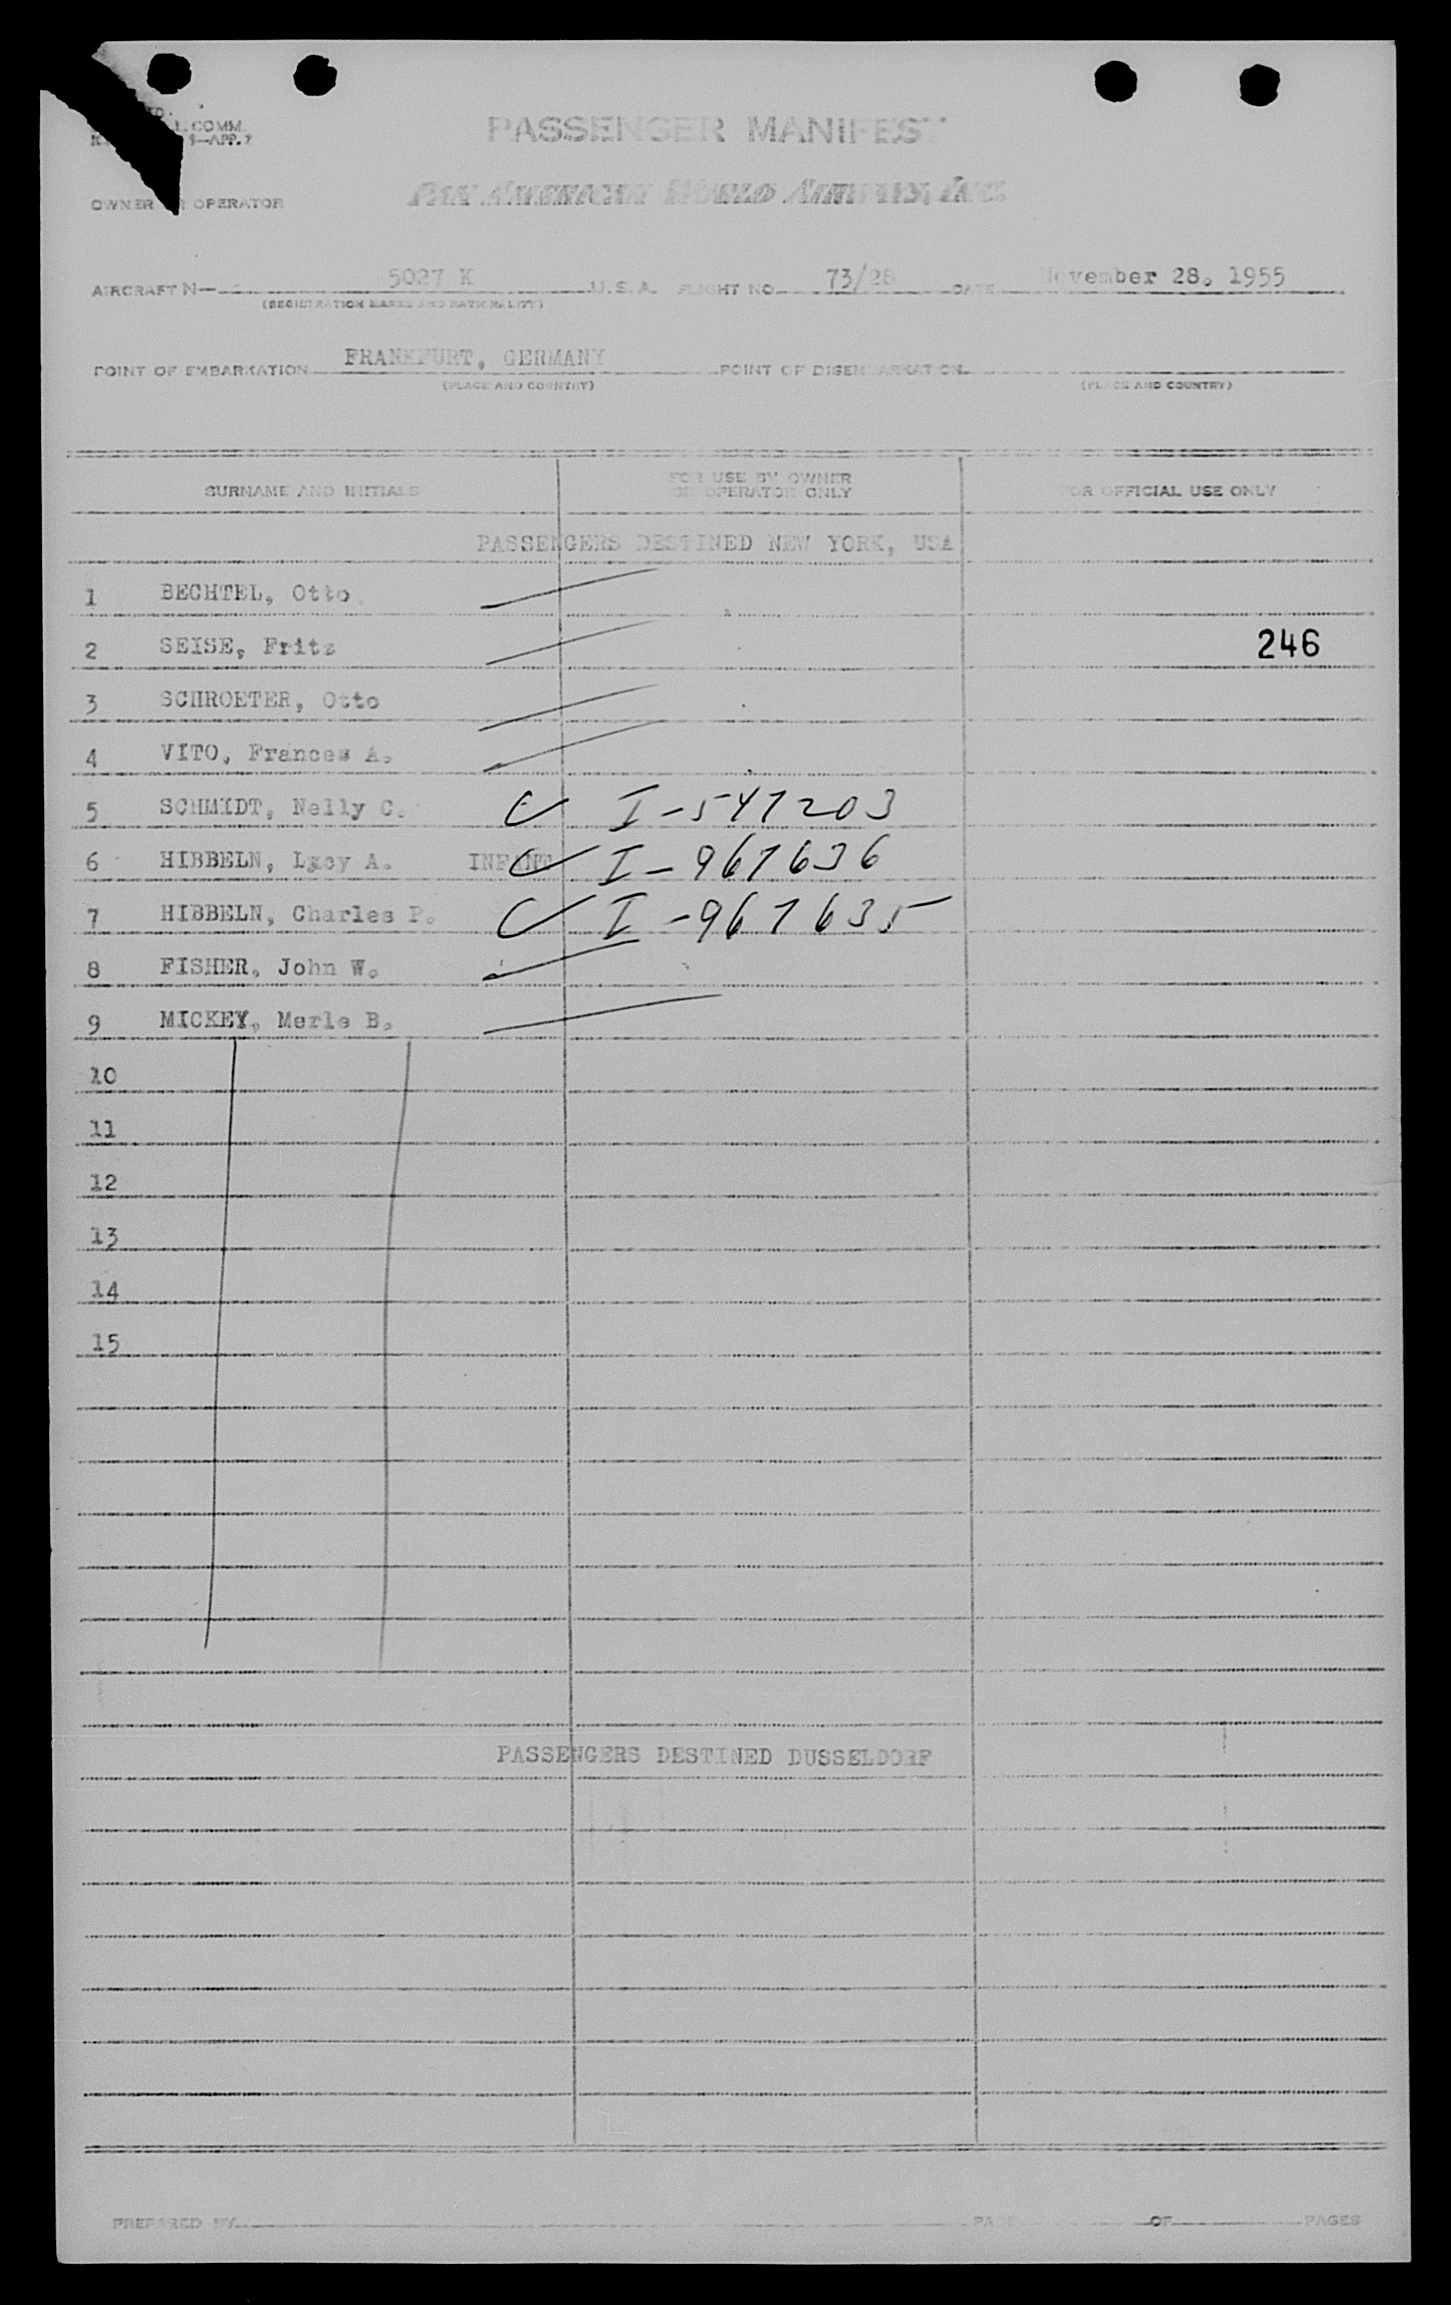 COMM.
—APP. 7
PASSENGER MANIFEST
OWNER OR OPERATOR PAN AMERICAN WORLD AIRWAYS, INC.
AIRCRAFT N— 5027 K U. S. A. FLIGHT NO. 73/28 DATE November 28, 1955
(REGISTRATION MARKS AND NATIONALITY)
POINT OF EMBARKATION FRANKFURT, GERMANY POINT OF DISEMBARKATION
(PLACE AND COUNTRY) (PLACE AND COUNTRY)
SURNAME AND INITIALS FOR USE BY OWNER OR OPERATOR ONLY FOR OFFICIAL USE ONLY
PASSENGERS DESTINED NEW YORK, USA
1 BECHTEL, Otto
2 SEISE, Fritz 246
3 SCHROETER, Otto
4 VITO, Frances A.
5 SCHMIDT, Nelly C. I-541203
6 HIBBELN, Lucy A. INFANT I-967636
7 HIBBELN, Charles P. I-967635
8 FISHER, John W.
9 MICKEY, Merle B.
10
11
12
13
14
15
PASSENGERS DESTINED DUSSELDORF
PREPARED BY PAGE OF PAGES